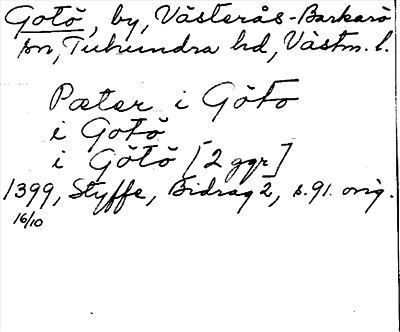 Gotö, by, Västerås-Barkarö
sn, Tuhundra hd, Västm. l.
Pæter i Göto
i Gotö
i Götö [2 ggr]
1399, Styffe, Bidrag 2, s. 91. orig.
16/10